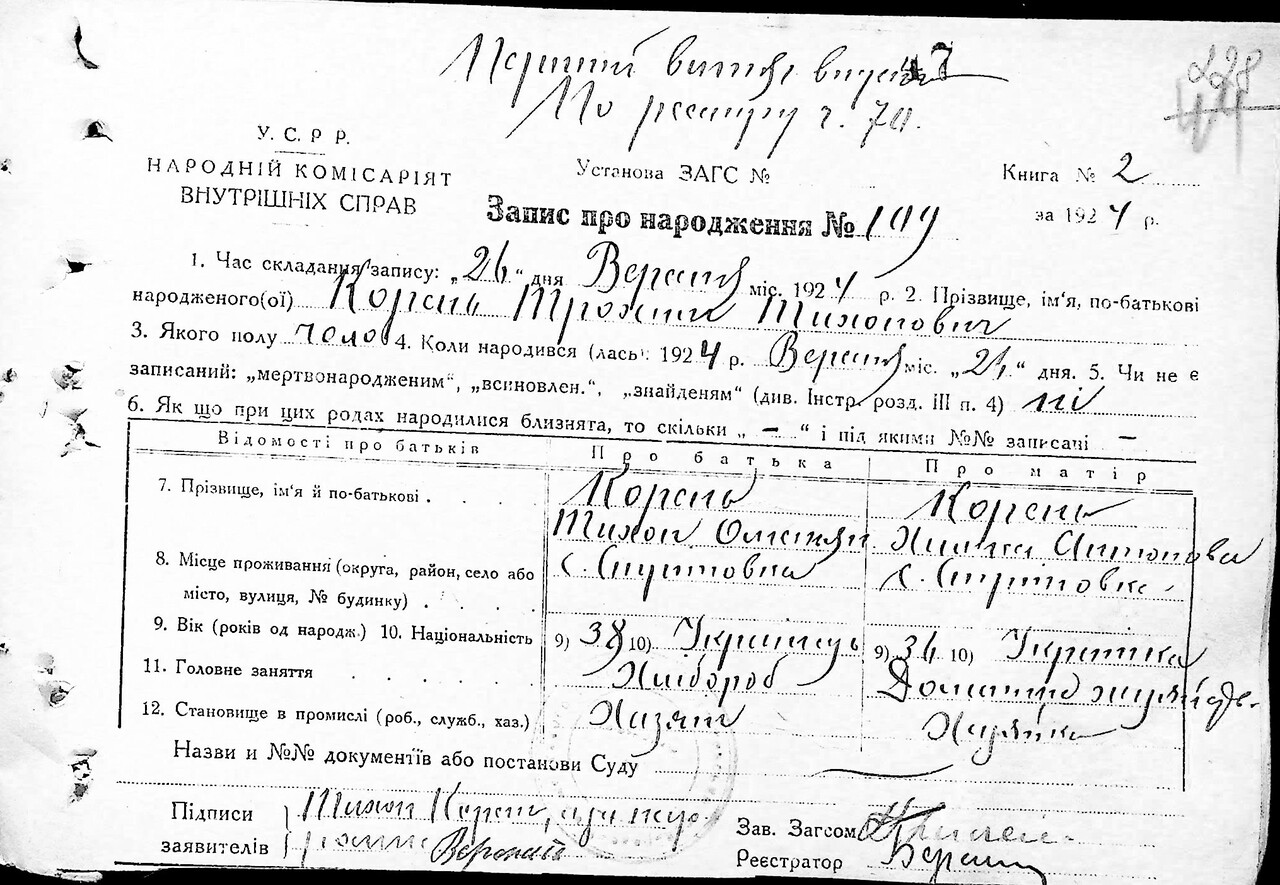 Перший витяг видано
По реєстру ч. 70.
228
У. С. Р Р.
НАРОДНІЙ КОМІСАРІЯТ
ВНУТРІШНІХ СПРАВ
Установа ЗАГС №
Книга № 2
за 1924 р.
Запис про народження № 109
1. Час складання запису: „26“ дня Вересня міс. 1924 р. 2. Прізвище, ім‘я, по-батькові
народженого(ої) Корень Трохим Тихонович
3. Якого полу чоло 4. Коли народився (лась): 1924 р. Вересня міс. „21“ дня. 5. Чи не є
записаний: „мертвонародженим“, „всиновлен.“, „знайденям“ (див. Інстр. розд. III п. 4) ні
6. Як що при цих родах народилися близнята, то скільки „ – “ і під якими №№ записані –
Відомості про батьків Про батька Про матір
7. Прізвище, ім‘я й по-батькові . . . Корень Корень
Тихон Антонова
8. Місце проживання (округа, район, село або с. с.
місто, вулиця, № будинку) . . . .
9. Вік (років од народж.) 10. Національність 9) 38 10) Українець 9) 36 10) Українка
11. Головне заняття . . . . . Хлібороб
12. Становище в промислі (роб., служб., хаз.) Хазяїн Хазяйка
Назви и №№ документїів або постанови Суду
Підписи Тихон Корень,
заявителів
Зав. Загсом
Реєстратор